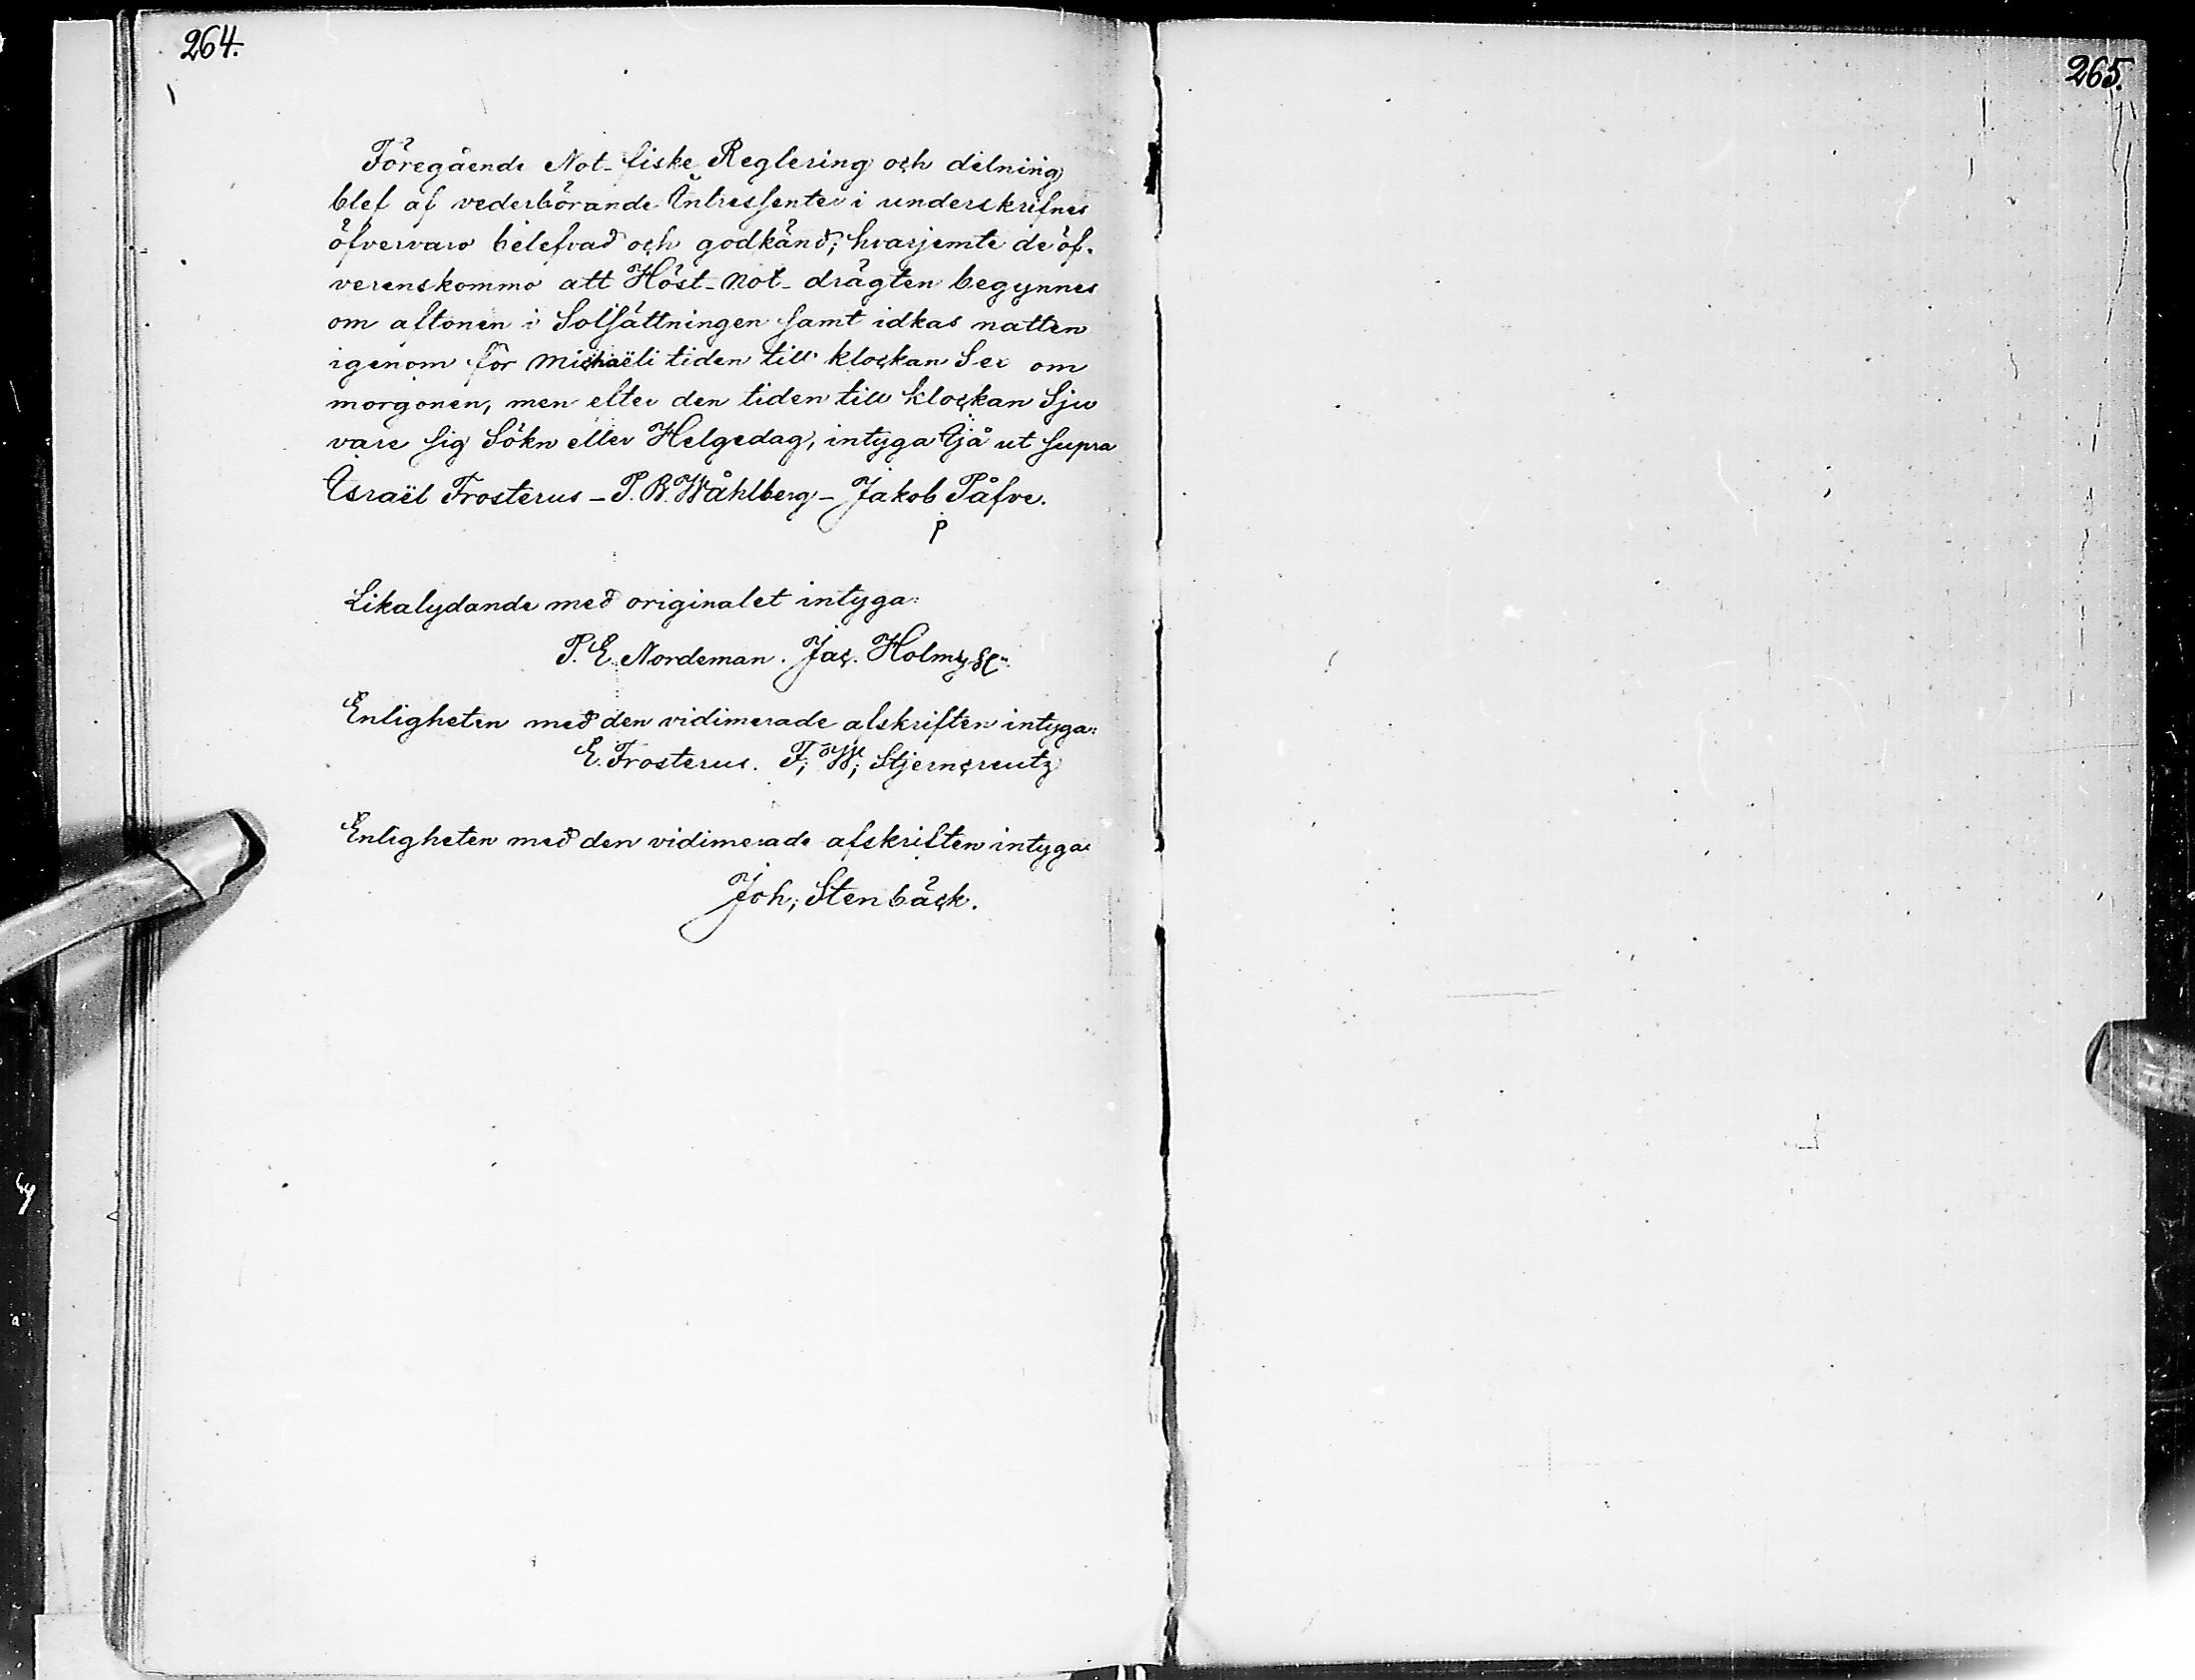 264.
Föregående Not-fiske Reglering och delning
blef af vederbörande Intressenter i underskrifnes
öfvervaro belefvad och godkänd; hvarjemte de öf-
verenskommo att Höst-not-drägten begynnes
om aftonen i Solsättningen samt idkas natten
igenom för Michaëli tiden till klockan Sex om
morgonen, men efter den tiden till klockan Sju
vare sig Sökn eller Helgedag, intyga Ijå ut supra
Israël Frosterus - P. B. Wåhlberg - Jakob Påfve.
P
Likalydande med originalet intyga:
P. E. Nordeman. Jac.
Enligheten med den vidimerade afskriften intyga:
E. Frosterus. F; W; Stjerncreutz
Enligheten med den vidimerade afskriften intygar
Joh; Stenbäck.
265.